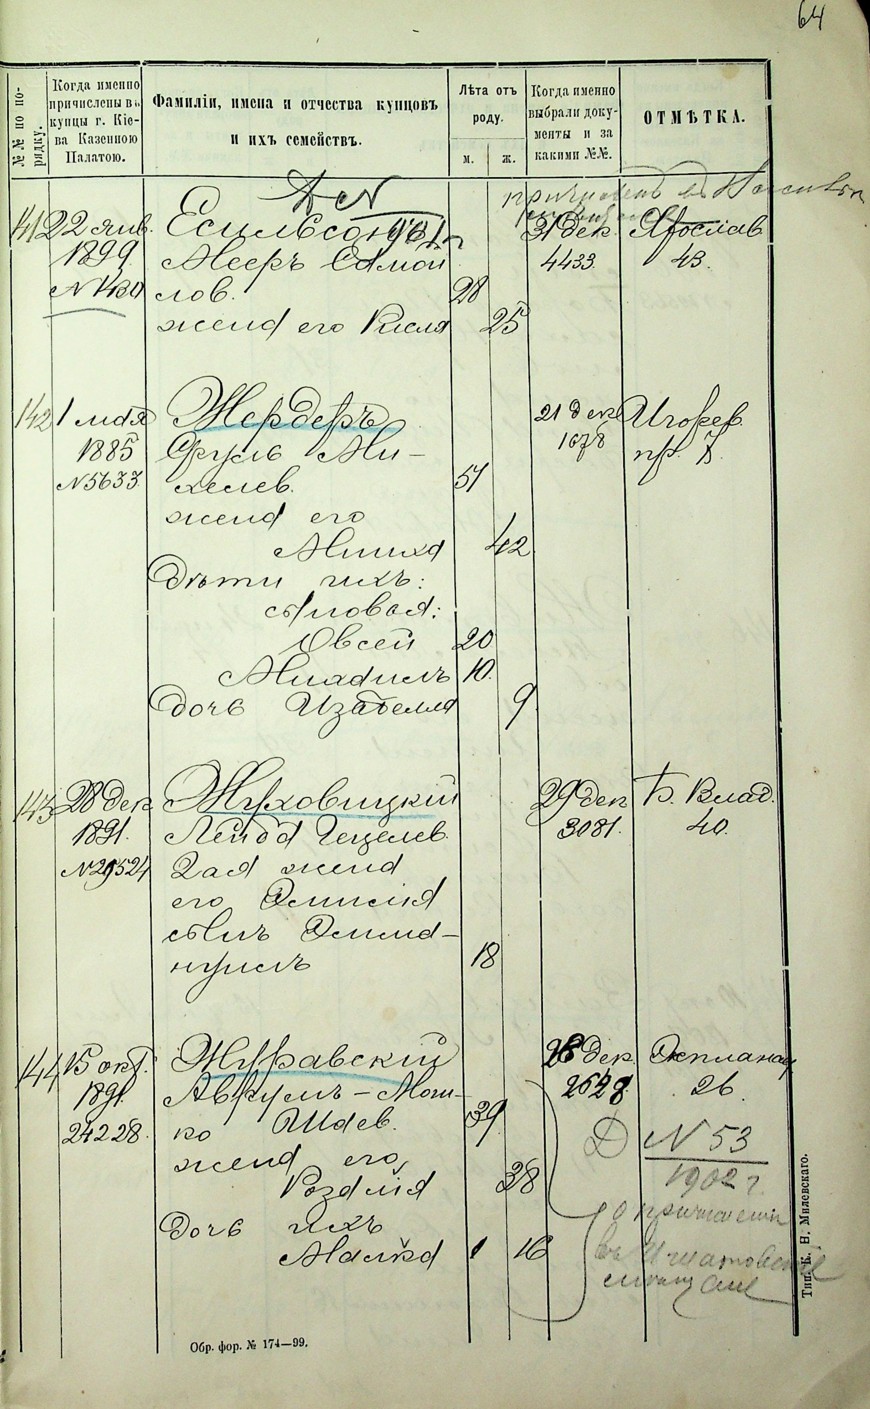 64
№№ по порядку.
Когда именно причислены въ купцы г. Кіева Казенною Палатою.
Фамиліи, имена и отчества купцовъ и ихъ семействъ.
Лѣта отъ роду.
м.
ж.
Когда именно выбрали документы и за какими №№.
ОТМѢТКА.
141
22 янв.
1899
N 1430
Мееръ Самой
лов.
28
жена его Кисля
25
31 дек.
4433.
Ярослав
43.
142
1 мая
1885
N 5633
Жердеръ
Сруль Ми-
хелев.
51
жена его
42
Дѣти ихъ:
сыновья:
Овсей
20
10.
дочь Изабелла
9
21 дек
1678
Игорев.
пр. 7.
143
28 дек
1891.
N 29524
Жуховицкій
Лейба Гецелев.
2ая жена
его Эмилія
сынъ Эмма-
нуилъ
18
29 дек
3081.
Б. Влад.
40.
144
15 окт.
1891.
24228.
Журавскій
Аврумъ-Мош-
ко Шаев.
39
жена его
Розалія
38
дочь ихъ
Малка
16
28 дек.
2528
26.
N 53
1902 г.
о причислении
Обр. фор. № 174—99.
Тип. К. Н. Милевскаго.